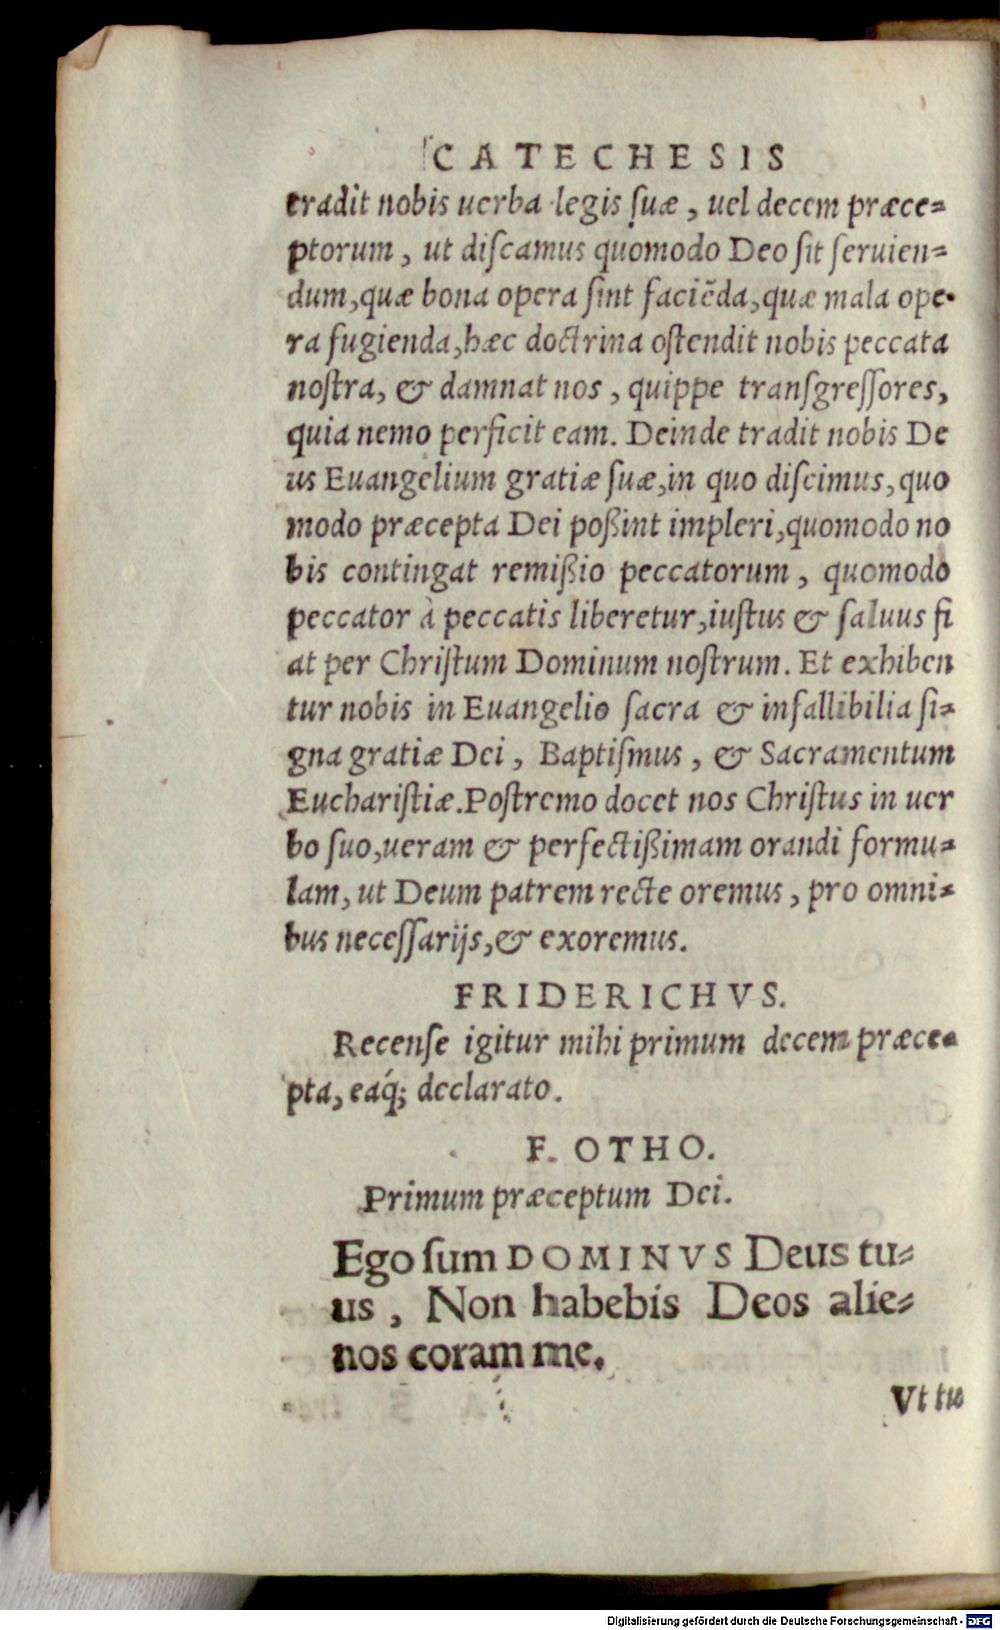 CATECHESIS
tradit nobis uerba legis ſuæ, uel decem præce⸗
ptorum, ut diſcamus quomodo Deo ſit ſeruien⸗
dum, quæ bona opera ſint faciẽda, quæ mala ope⸗
ra fugienda, hæc doctrina oſtendit nobis peccata
noſtra, & damnat nos, quippe tranſgreſſores,
quia nemo perficit eam. Deinde tradit nobis De
us Euangelium gratiæ ſuæ, in quo diſcimus, quo
modo præcepta Dei poßint impleri, quomodo no
bis contingat remißio peccatorum, quomodo
peccator à peccatis liberetur, iuſtus & ſaluus fi
at per Chriſtum Dominum noſtrum. Et exhiben
tur nobis in Euangelio ſacra & infallibilia ſi⸗
gna gratiæ Dei, Baptiſmus, & Sacramentum
Euchariſtiæ. Poſtremo docet nos Chriſtus in uer
bo ſuo, ueram & perfectißimam orandi formu⸗
lam, ut Deum patrem recte oremus, pro omni⸗
bus neceſſarijs, & exoremus.
FRIDERICHVS.
Recenſe igitur mihi primum decem præce⸗
pta, eaq́; declarato.
F. OTHO.
Primum præceptum Dei.
Ego ſum DOMINVS Deus tu⸗
us, Non habebis Deos alie⸗
nos coram me.
Vt tu
Digitalisierung gefördert durch die Deutsche Forschungsgemeinschaft - DFG